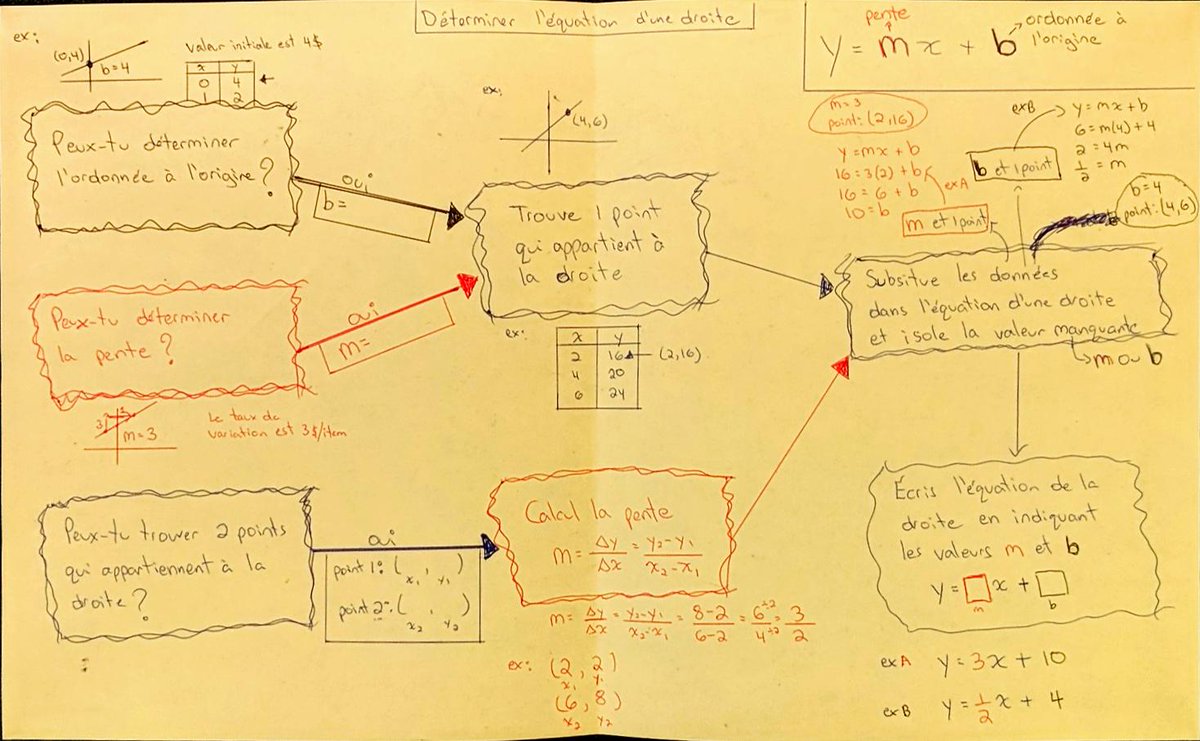 Déterminer l'équation d'une droite
ex:
(0,4)
b=4
valeur initiale est 4$
x y
0 4
1 2
Peux-tu déterminer
l'ordonnée à l'origine?
oui
b=
Peux-tu déterminer
la pente?
oui
m=
m=3
Le taux de
variation est 3$/item
Peux-tu trouver 2 points
qui appartiennent à la
droite?
oui
point 1: ( , )
x₁ y₁
point 2: ( , )
x₂ y₂
ex:
(4,6)
Trouve 1 point
qui appartient à
la droite
ex:
x y
2 16 (2,16)
4 20
6 24
Calcul la pente
m = Δy/Δx = y₂-y₁/x₂-x₁
m = Δy/Δx = y₂-y₁/x₂-x₁ = 8-2/6-2 = 6÷2/4÷2 = 3/2
ex: (2, 2)
x₁ y₁
(6, 8)
x₂ y₂
pente
ordonnée à
l'origine
y = mx + b
m=3
point: (2,16)
y=mx+b
16=3(2)+b
16=6+b
10=b
exA
m et 1 point
exB
b et 1 point
y=mx+b
6=m(4)+4
2=4m
1/2=m
b=4
point: (4,6)
Subsitue les données
dans l'équation d'une droite
et isole la valeur manquante
m ou b
Écris l'équation de la
droite en indiquant
les valeurs m et b
y = x +
m b
exA y=3x+10
exB y=1/2x+4